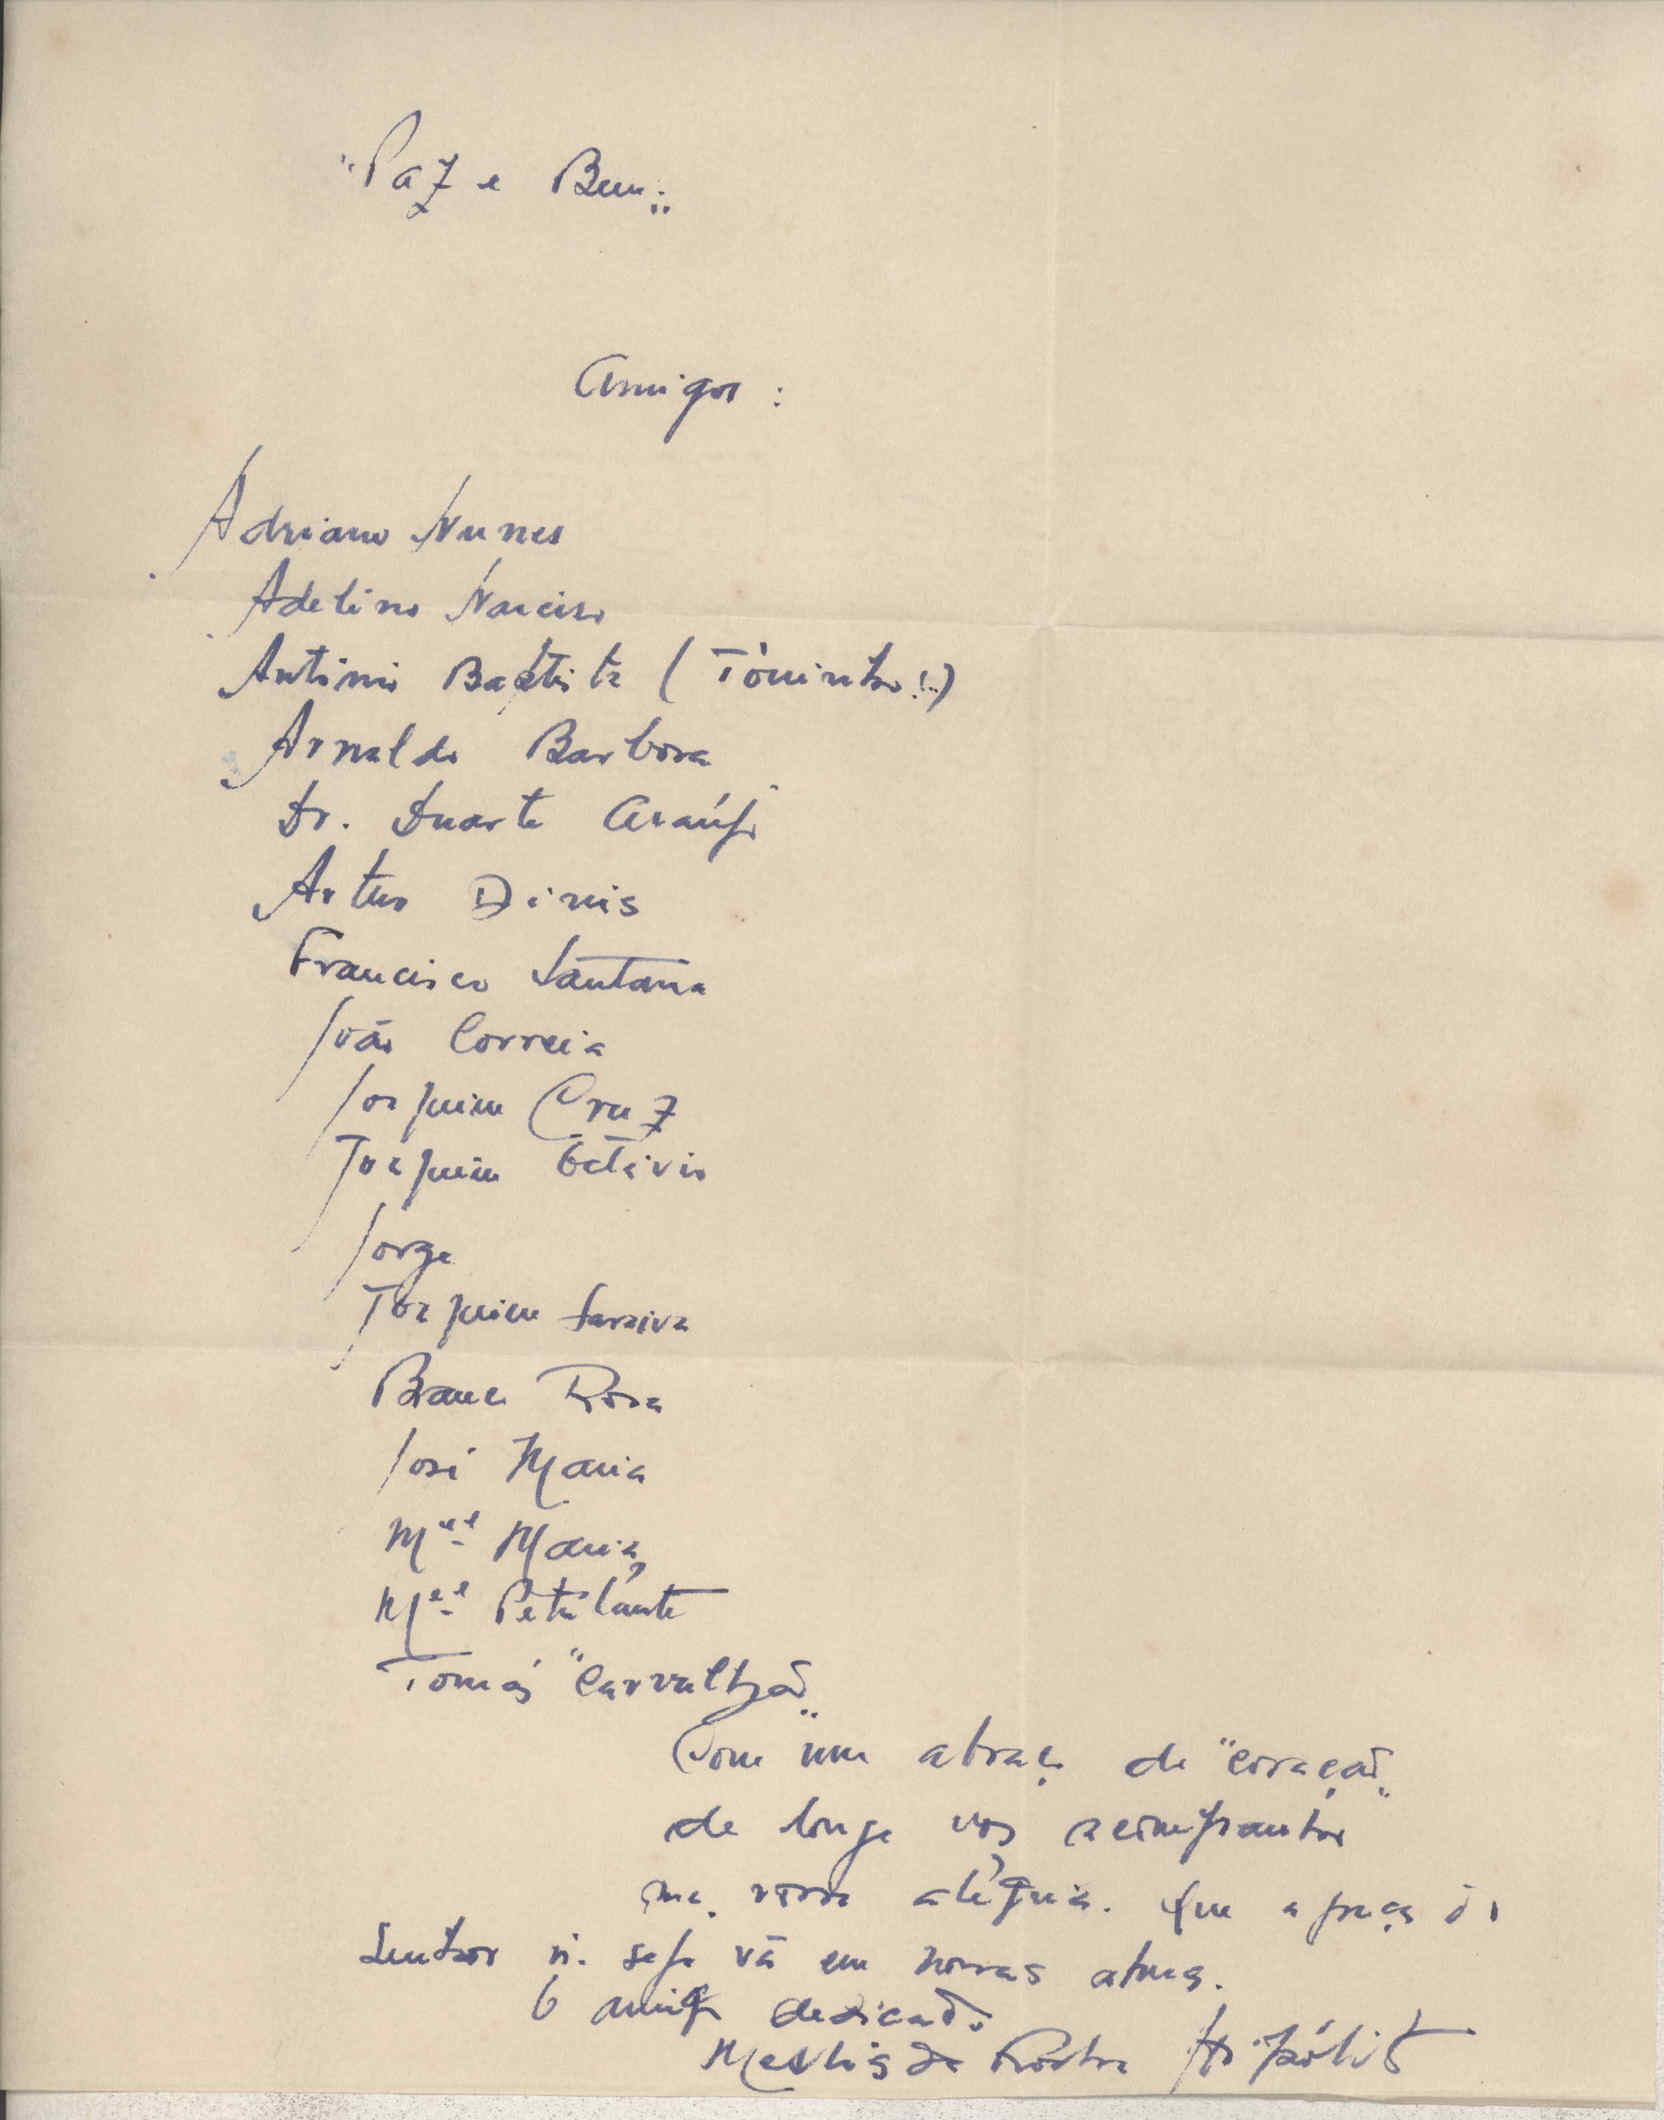 "Paz e Bem"
Amigos:
Adriano Nunes
Adelino Narciso
António Baptista (Tòninho!..)
Arnaldo Barbosa
Dr. Duarte Araújo
Artur Dinis
Francisco Santana
João Correia
Joaquim Cruz
Joaquim Octávio
Jorge
Joaquim Saraiva
Branco Rosa
José Maria
Mel Maria
Mel Petulante
Tomás "Carvalhão"
Com um abraço de "coração"
de longe vos acompanho
na vossa alegria. Que a graça do
Senhor n. seja vã em nossas almas.
O amigo dedicado
Hipólito